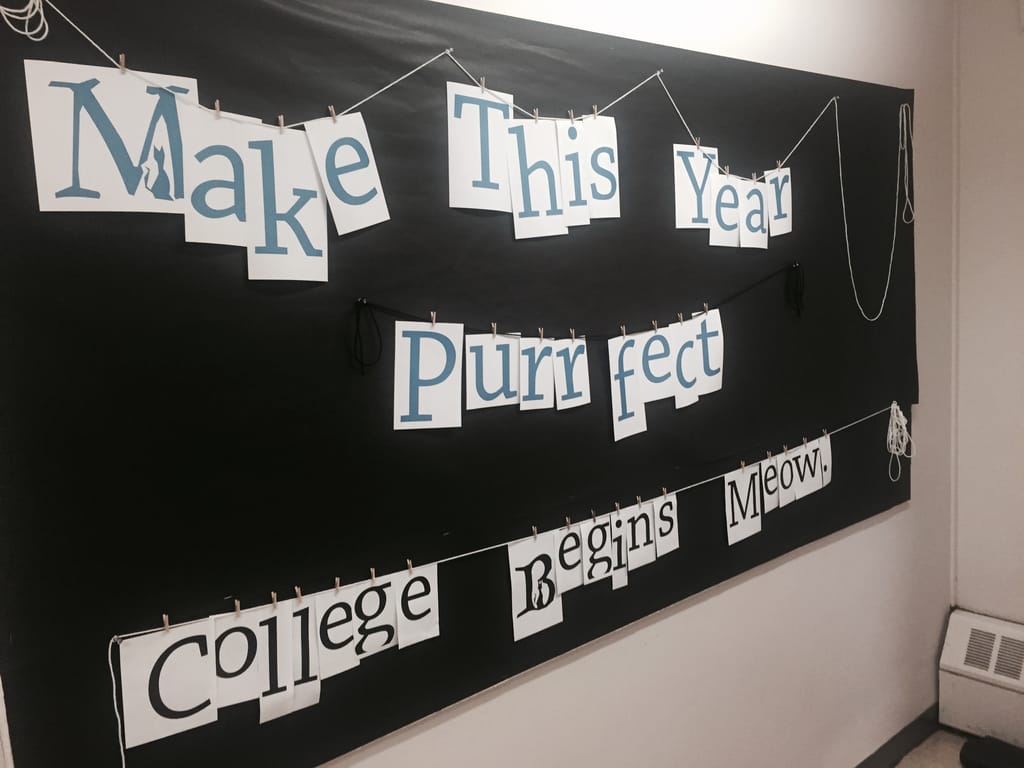 Make This Year
Purrfect
College Begins Meow.